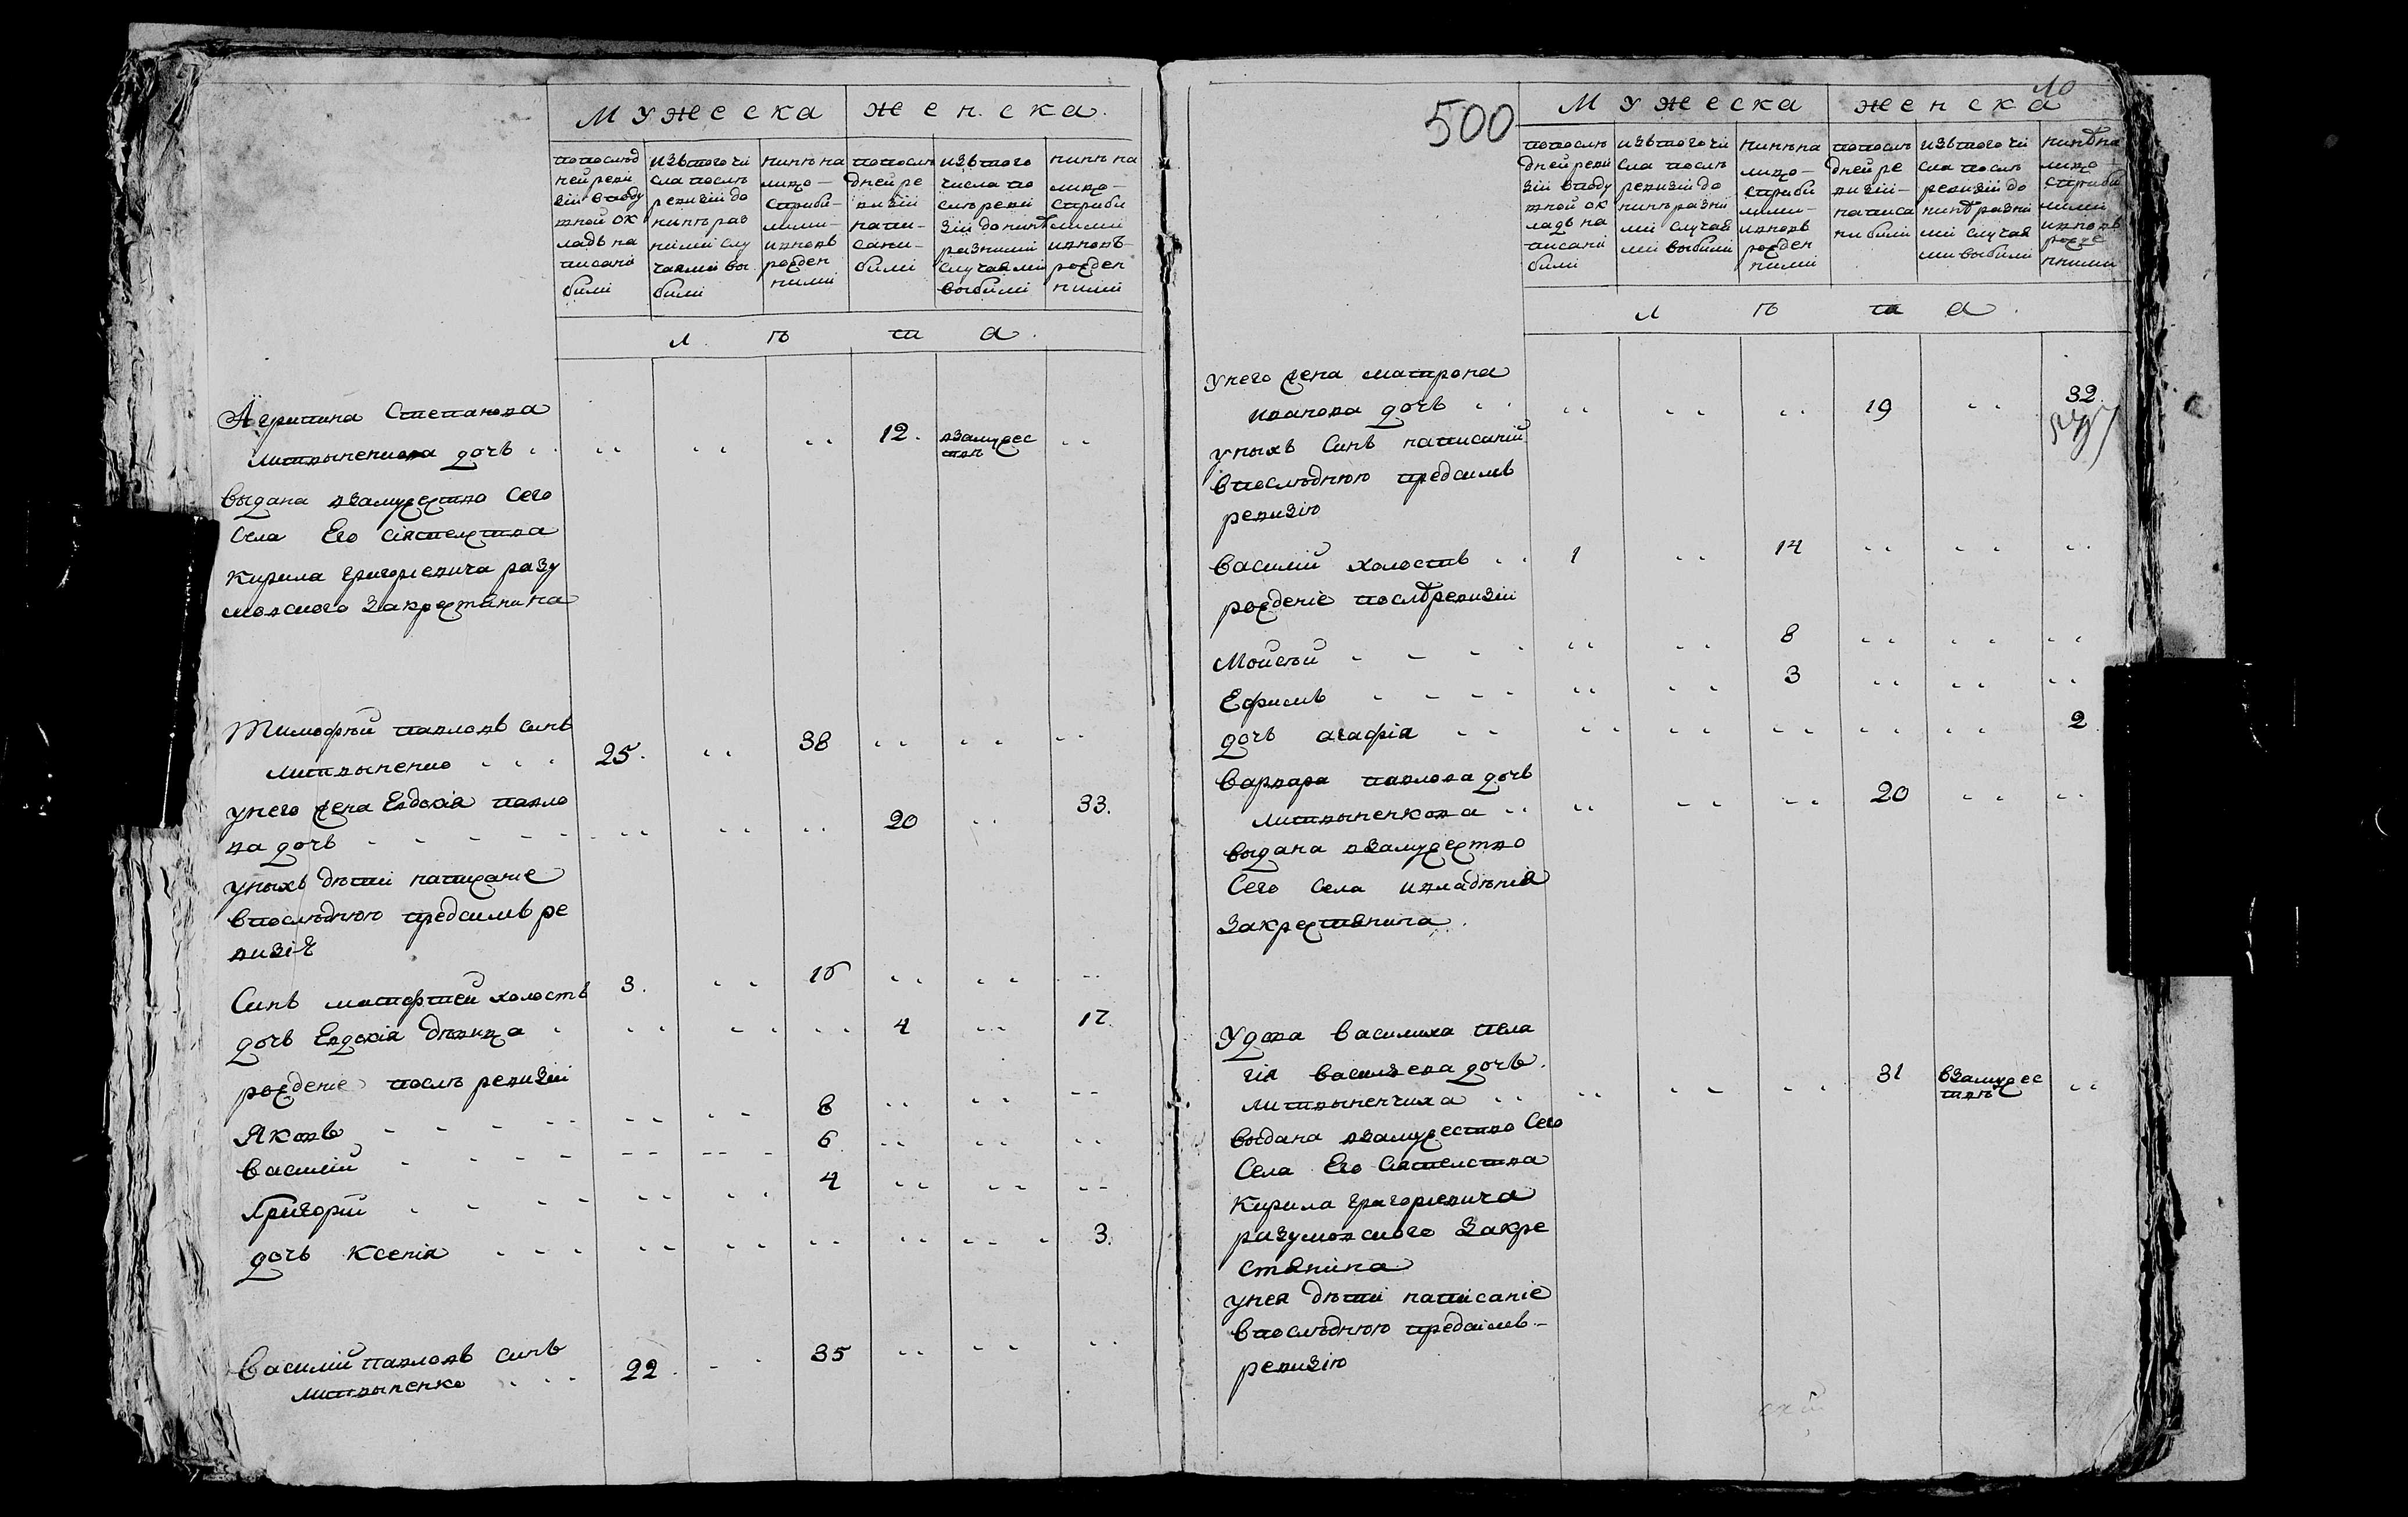 Мужеска женска
попослѣд
ней реви
зіи вподу
шной ок
ладъ на
писани
били
изътого чи
сла послѣ
ревизіи до
нинѣ раз
ними слу
чаями вы
били
нинѣ на
лицо
сприби-
лими-
ивновь
рожден
ними
попослѣ
дней ре
визіи
напи-
сани-
били
изътого
числа по
слѣ реви
зіи до нинѣ
разними
случаями
выбили
нинѣ на
лицо-
сприби
лими
ивновь-
рожден
ними
лѣта
Агрипина Степанова
Литвыненкова дочь 12. взамужес
твѣ
выдана взамужество Сего
Села Его Сіятелства
Кирила Григорїевича разу
мовского Закрестянина
Тимофѣй павловъ синъ
литвыненко 25. 38
унего жена Евдокія павло
ва дочь 20 33.
унихъ дѣти написаніе
впослѣднюю предсимъ ре
визію
Синъ матфей холостъ 3. 16
дочь Евдокія дѣвица 4 17.
рожденіе послѣ ревизіи
Яковъ 8
василій 6
Григорій 4
дочь Ксенія 3.
Василій павловъ синъ
литвыненко 22. 35
500
10
Мужеска женска
попослѣ
дней реви
зіи вподу
шной ок
ладъ на
писани
били
изътого чи
сла послѣ
ревизіи до
нинѣ разни
ми случая
ми выбили
нинѣ на
лицо-
сприби
лими-
ивновь
рожден
ними
попослѣ
дней ре
визіи-
написа
ни били
изътого чи
сла послѣ
ревизіи до
нинѣ разни
ми случая
ми выбили
нинѣ на
лицо
сприби
лими
ивновь
рожде
нними
лѣта
унего жена матрона
иванова дочь 19 32.
унихъ Синъ написаній
впослѣднюю предсимъ
ревизію
василій холостъ 1 14
рожденіе послѣ ревизіи
Мойсѣй 8
Ефимъ 3
дочь агафія 2
варвара павлова дочь
литвыненкова 20
выдана взамужество
Сего Села ивладѣнія
Закрестянина.
Удова василиха пела
гія василева дочь.
литвыненчиха 31 взамужес
твѣ
выдана взамужество Сего
Села Его Сіятелства
Кирила григорїевича
разумовского Закре
стянина
унея дѣти написаніе
впослѣднюю предсимъ-
ревизію